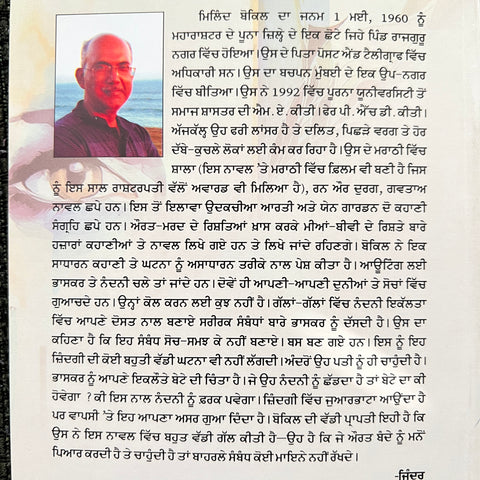 ਮਿਲਿੰਦ ਬੋਕਿਲ ਦਾ ਜਨਮ 1 ਮਈ, 1960 ਨੂੰ
ਮਹਾਰਾਸ਼ਟਰ ਦੇ ਪੂਨਾ ਜ਼ਿਲ੍ਹੇ ਦੇ ਇਕ ਛੋਟੇ ਜਿਹੇ ਪਿੰਡ ਰਾਜਗੁਰੂ
ਨਗਰ ਵਿੱਚ ਹੋਇਆ। ਉਸ ਦੇ ਪਿਤਾ ਪੋਸਟ ਐਂਡ ਟੈਲੀਗ੍ਰਾਫ ਵਿੱਚ
ਅਧਿਕਾਰੀ ਸਨ। ਉਸ ਦਾ ਬਚਪਨ ਮੁੰਬਈ ਦੇ ਇਕ ਉਪ-ਨਗਰ
ਵਿੱਚ ਬੀਤਿਆ। ਉਸ ਨੇ 1992 ਵਿੱਚ ਪੂਰਨਾ ਯੂਨੀਵਰਸਿਟੀ ਤੋਂ
ਸਮਾਜ ਸ਼ਾਸਤਰ ਦੀ ਐਮ.ਏ. ਕੀਤੀ। ਫੇਰ ਪੀ.ਐੱਚ ਡੀ. ਕੀਤੀ।
ਅੱਜਕੱਲ੍ਹ ਉਹ ਫਰੀ ਲਾਂਸਰ ਹੈ ਤੇ ਦਲਿਤ, ਪਿਛੜੇ ਵਰਗ ਤੇ ਹੋਰ
ਦੱਬੇ-ਕੁਚਲੇ ਲੋਕਾਂ ਲਈ ਕੰਮ ਕਰ ਰਿਹਾ ਹੈ। ਉਸ ਦੇ ਮਰਾਠੀ ਵਿੱਚ
ਸ਼ਾਲਾ (ਇਸ ਨਾਵਲ 'ਤੇ ਮਰਾਠੀ ਵਿੱਚ ਫ਼ਿਲਮ ਵੀ ਬਣੀ ਹੈ ਜਿਸ
ਨੂੰ ਇਸ ਸਾਲ ਰਾਸ਼ਟਰਪਤੀ ਵੱਲੋਂ ਅਵਾਰਡ ਵੀ ਮਿਲਿਆ ਹੈ), ਰਨ ਔਰ ਦੁਰਗ, ਗਵਤਾਅ
ਨਾਵਲ ਛਪੇ ਹਨ। ਇਸ ਤੋਂ ਇਲਾਵਾ ਉਦਕਚੀਆ ਆਰਤੀ ਅਤੇ ਯੇਨ ਗਾਰਡਨ ਦੋ ਕਹਾਣੀ
ਸੰਗ੍ਰਹਿ ਛਪੇ ਹਨ। ਔਰਤ-ਮਰਦ ਦੇ ਰਿਸ਼ਤਿਆਂ ਖ਼ਾਸ ਕਰਕੇ ਮੀਆਂ-ਬੀਵੀ ਦੇ ਰਿਸ਼ਤੇ ਬਾਰੇ
ਹਜ਼ਾਰਾਂ ਕਹਾਣੀਆਂ ਤੇ ਨਾਵਲ ਲਿਖੇ ਗਏ ਹਨ ਤੇ ਲਿਖੇ ਜਾਂਦੇ ਰਹਿਣਗੇ। ਬੋਕਿਲ ਨੇ ਇਕ
ਸਾਧਾਰਨ ਕਹਾਣੀ ਤੇ ਘਟਨਾ ਨੂੰ ਅਸਾਧਾਰਨ ਤਰੀਕੇ ਨਾਲ ਪੇਸ਼ ਕੀਤਾ ਹੈ। ਆਊਟਿੰਗ ਲਈ
ਭਾਸਕਰ ਤੇ ਨੰਦਨੀ ਚਲੇ ਤਾਂ ਜਾਂਦੇ ਹਨ। ਦੋਵੇਂ ਹੀ ਆਪਣੀ-ਆਪਣੀ ਦੁਨੀਆਂ ਤੇ ਸੋਚਾਂ ਵਿੱਚ
ਗੁਆਚਦੇ ਹਨ। ਉਨ੍ਹਾਂ ਕੋਲ ਕਰਨ ਲਈ ਕੁਛ ਨਹੀਂ ਹੈ। ਗੱਲਾਂ-ਗੱਲਾਂ ਵਿੱਚ ਨੰਦਨੀ ਇਕੱਲਤਾ
ਵਿੱਚ ਆਪਣੇ ਦੋਸਤ ਨਾਲ ਬਣਾਏ ਸਰੀਰਕ ਸੰਬੰਧਾਂ ਬਾਰੇ ਭਾਸਕਰ ਨੂੰ ਦੱਸਦੀ ਹੈ। ਉਸ ਦਾ
ਕਹਿਣਾ ਹੈ ਕਿ ਇਹ ਸੰਬੰਧ ਸੋਚ-ਸਮਝ ਕੇ ਨਹੀਂ ਬਣਾਏ। ਬਸ ਬਣ ਗਏ ਹਨ। ਇਸ ਨੂੰ ਇਹ
ਜ਼ਿੰਦਗੀ ਦੀ ਕੋਈ ਬਹੁਤੀ ਵੱਡੀ ਘਟਨਾ ਵੀ ਨਹੀਂ ਲੱਗਦੀ। ਅੰਦਰੋਂ ਉਹ ਪਤੀ ਨੂੰ ਹੀ ਚਾਹੁੰਦੀ ਹੈ।
ਭਾਸਕਰ ਨੂੰ ਆਪਣੇ ਇਕਲੌਤੇ ਬੇਟੇ ਦੀ ਚਿੰਤਾ ਹੈ। ਜੇ ਉਹ ਨੰਦਨੀ ਨੂੰ ਛੱਡਦਾ ਹੈ ਤਾਂ ਬੇਟੇ ਦਾ ਕੀ
ਹੋਵੇਗਾ ? ਕੀ ਇਸ ਨਾਲ ਨੰਦਨੀ ਨੂੰ ਫ਼ਰਕ ਪਵੇਗਾ। ਜ਼ਿੰਦਗੀ ਵਿੱਚ ਜੁਆਰਭਾਟਾ ਆਉਂਦਾ ਹੈ
ਪਰ ਵਾਪਸੀ 'ਤੇ ਇਹ ਆਪਣਾ ਅਸਰ ਗੁਆ ਦਿੰਦਾ ਹੈ। ਬੋਕਿਲ ਦੀ ਵੱਡੀ ਪ੍ਰਾਪਤੀ ਇਹੀ ਹੈ ਕਿ
ਉਸ ਨੇ ਇਸ ਨਾਵਲ ਵਿੱਚ ਬਹੁਤ ਵੱਡੀ ਗੱਲ ਕੀਤੀ ਹੈ—ਉਹ ਹੈ ਕਿ ਜੇ ਔਰਤ ਬੰਦੇ ਨੂੰ ਮਨੋਂ
ਪਿਆਰ ਕਰਦੀ ਹੈ ਤੇ ਚਾਹੁੰਦੀ ਹੈ ਤਾਂ ਬਾਹਰਲੇ ਸੰਬੰਧ ਕੋਈ ਮਾਇਨੇ ਨਹੀਂ ਰੱਖਦੇ।
-ਜਿੰਦਰ